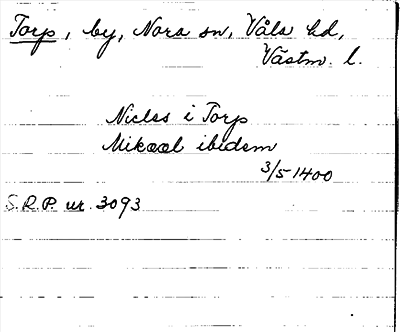 Torp, by, Nora sn, Våla hd,
Västm. l.
Niclss i Torp
Mikael ibidem
3/5 1400
S.R.P. nr. 3093